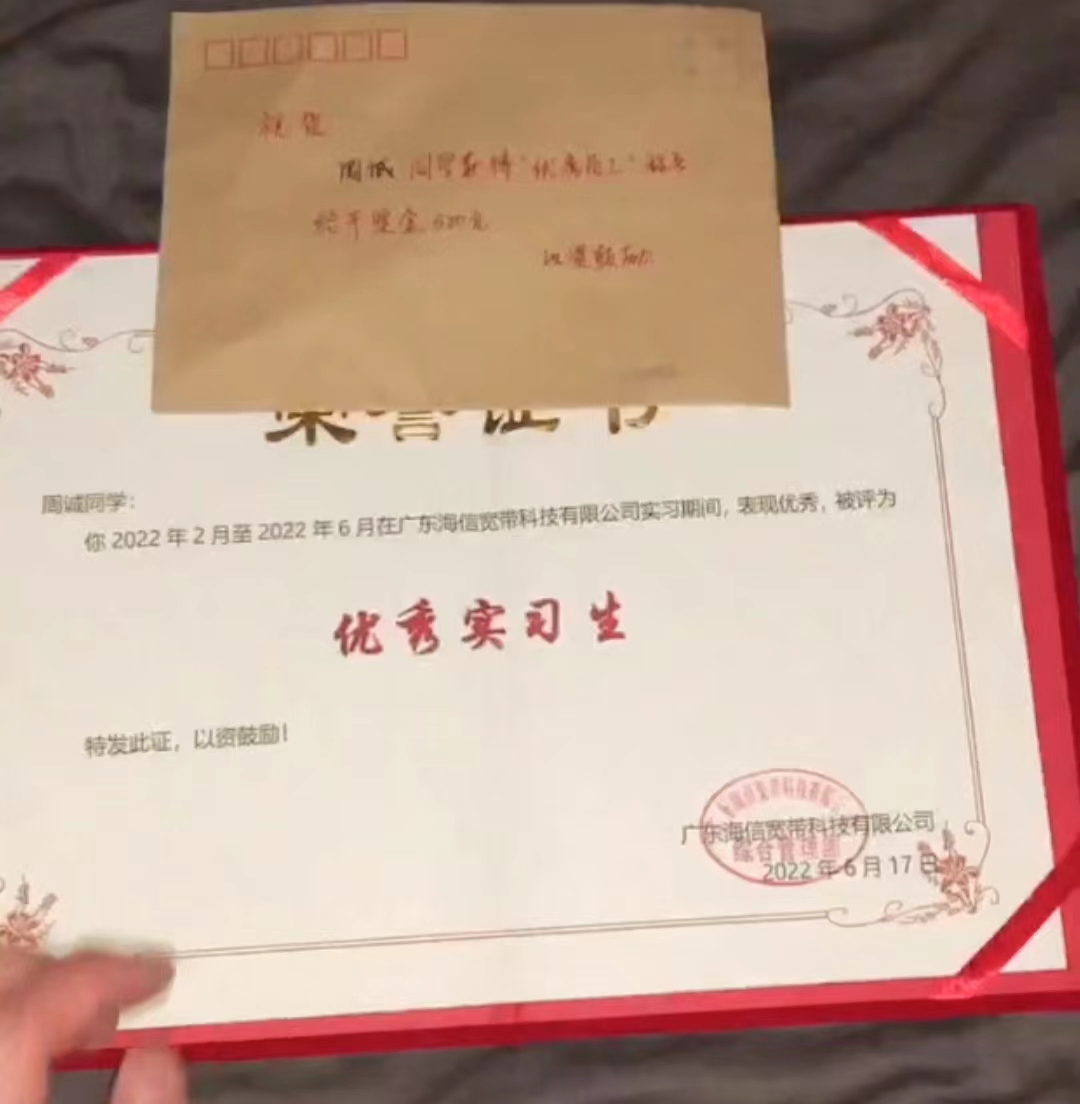 祝贺
周诚 同学获得“优秀员工”称号
给予奖金500元
以资鼓励
荣誉证书
周诚同学:
你 2022 年 2 月至 2022 年 6 月在广东海信宽带科技有限公司实习期间, 表现优秀, 被评为
优秀实习生
特发此证, 以资鼓励!
广东海信宽带科技有限公司
综合管理部
2022 年 6 月 17 日